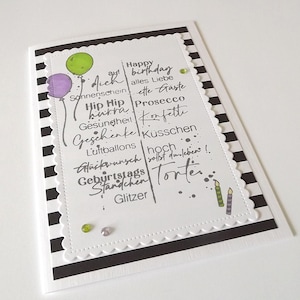 auf dich
Sonnenschein
Hip Hip
hurra
Gesundheit
Geschenke
Luftballons
Glückwunsch
Geburtstags
Ständchen
Glitzer
Happy
birthday
alles Liebe
Gäste
Prosecco
Konfetti
Küsschen
hoch
sollst du leben!
Torte